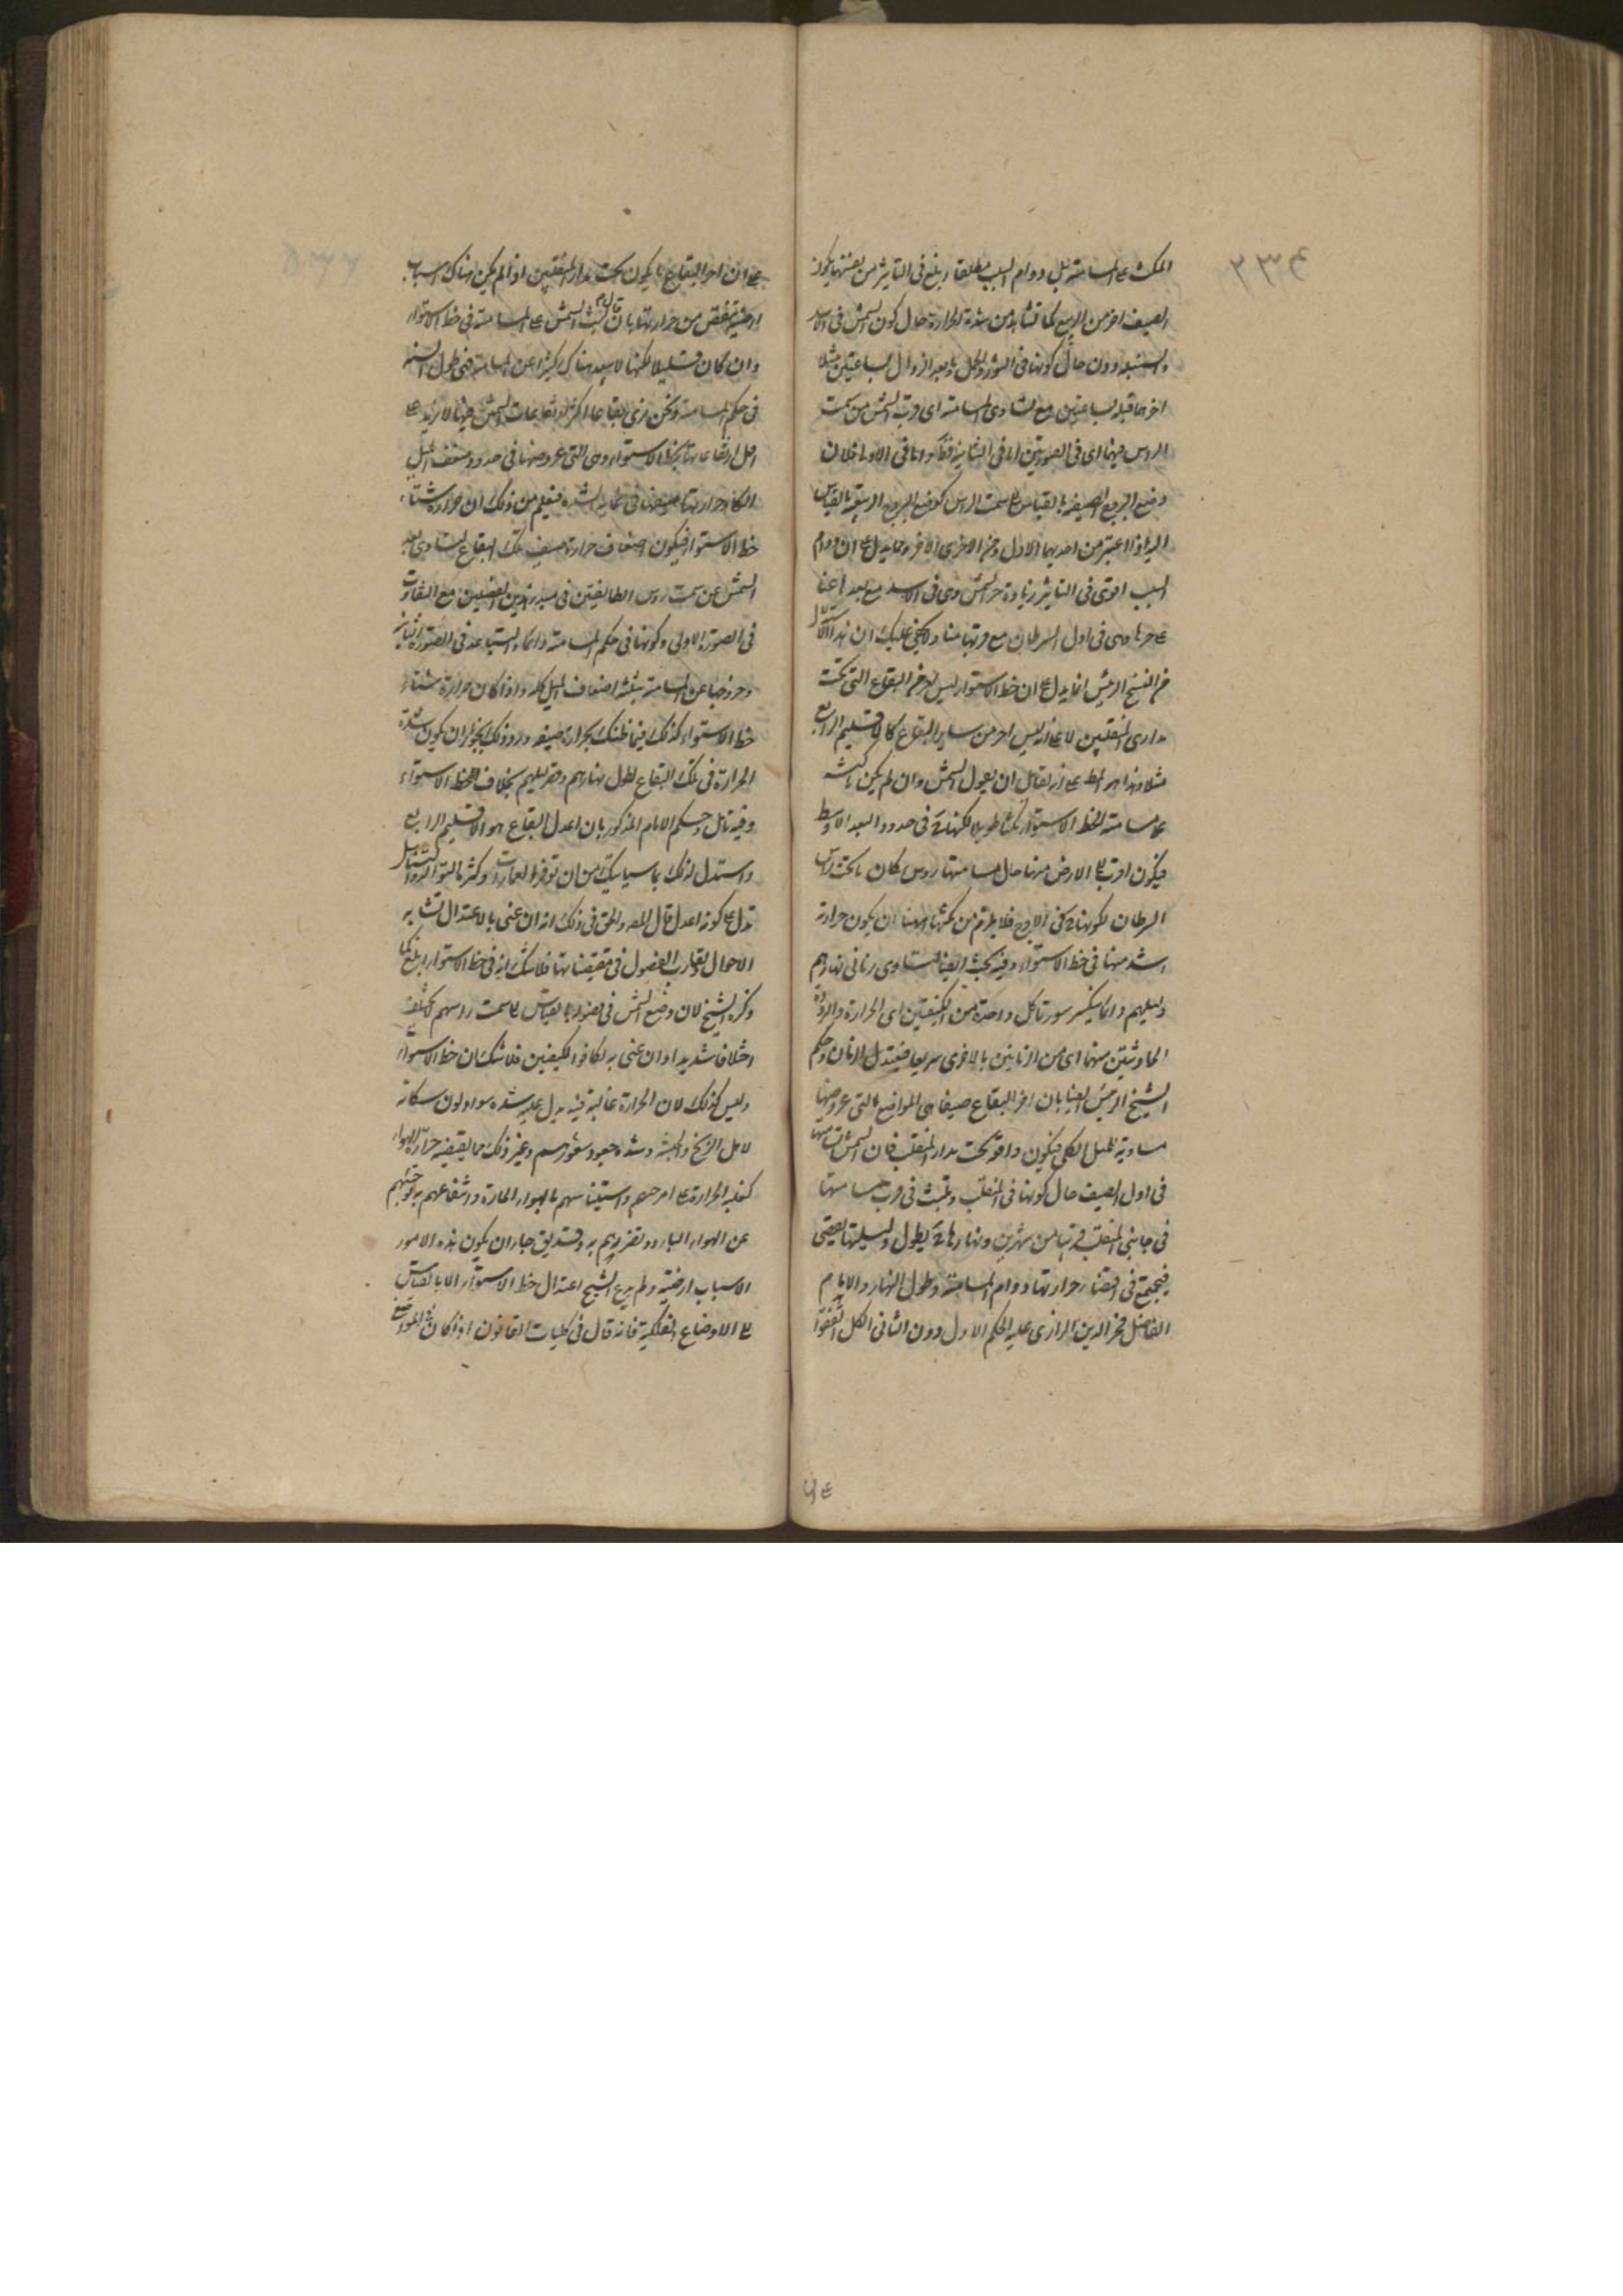 ٢٣٤
المكث على المسامتة بل دوام السبب مطلقا ابلغ فى التاثير من بعضها يكون
الصيف احر من الربيع كما تشاهد من شدة الحرارة حال كون الشمس فى الاسد
والسنبلة دون حال كونها فى الثور والحمل وما بعد الزوال بساعتين مثلا
احر مما قبله بساعتين مع تساوى المسامتة اى قرب الشمس من سمت
الراس فيهما اى فى الصورتين اما فى الثانية فظ واما فى الاولى فلان
وضع البروج الصيفية بالقياس الى سمت الراس كوضع البروج الربيعية بالقياس
اليه اذا اعتبر من احديهما الاول ومن الاخرى الاخر ومما يدل على ان دوام
السبب اقوى فى التاثير زيادة حر الشمس وهى فى الاسد مع بعدها عنا
على حرها وهى فى اول السرطان مع قربها منا ولا يخفى عليك ان هذا
من الشيخ الرئيس انما يدل على ان خط الاستواء ليس احر من البقاع التى تحت
مدارى المنقلبين لا على انه ليس احر من ساير البقاع كالاقليم الرابع
مثلا وهذا هو المط على انه لقائل ان يقول الشمس وان لم يكن مكثه
على مسامتة الخط الاستواء مكثا طويلا لكنها ح فى حدود البعد الاوسط
فيكون اقرب الى الارض منها حال مسامتتها روس سكان ما تحت راس
السرطان لكونها ح فى الاوج فلا يلزم من مكثها ههنا ان يكون حرارته
اشد منها فى خط الاستواء وفيه بحث ايضا لتساوى زمانى نهارهم
وليلهم دائما يكسر سورة كل واحدة من الكيفيتين اى الحرارة والبرودة
الحادثتين منهما اى من الزمانين بالاخرى سريعا فيعتدل الزمان وحكم
الشيخ الرئيس ايضا بان احر البقاع صيفا هى المواضع التى عروضها
مساوية للميل الكلى فيكون واقعة تحت مدار المنقلب فان الشمس تسامتها
فى اول الصيف حال كونها فى المنقلب وتلبث فى قرب مسامتتها
فى جانبى المنقلب قريبا من شهرين ونهارها ح يطول وليلها يقصر
فيجتمع فى اقتضاء حرارتها دوام المسامتة وطول النهار والامام
الفاضل فخر الدين الرازى عليه الحكم الاول دون الثانى الكل اتفقوا
على ان احر البقاع ما يكون تحت مدار المنقلبين اذا لم يكن هناك اسباب
ارضية تنقص من حرارتها بان قال لبث الشمس على المسامتة فى خط الاستواء
وان كان قليلا لكنها لا يبعد هناك كثيرا عن المسامتة فهى طول السنة
فى حكم المسامتة ونحن نرى بقاعا اكثر ارتفاعات الشمس فيها لا يزيد على
اقل ارتفاعاتها بخط الاستواء وهى التى عروضها فى حدود ضعف الميل
الكلى وحرارتها صيفا فى غاية الشدة فيعلم من ذلك ان حرارة شتاء
خط الاستواء فيكون اضعاف حرارة صيف تلك البقاع لتساوى بعد
الشمس عن سمت روس الطائفتين فى هذين الفصلين مع التفاوت
فى الصورة الاولى وكونها فى حكم المسامتة دائما والتباعد فى الصورة الثانية
وخروجها عن المسامتة بثلثة اضعاف الميل كله واذا كان حرارة شتاء
خط الاستواء كذلك فما ظنك بحرارة صيفه ورد ذلك بجواز ان يكون شدة
الحرارة فى تلك البقاع لطول نهارهم وقصر ليلهم بخلاف خط الاستواء
وفيه تامل وحكم الامام المذكور بان اعدل البقاع هو الاقليم الرابع
واستدل لذلك بما سياتيك من ان توفر العمارات وكثرة التوالد والتناسل
تدل على كونه اعدل قال المص والحق فى ذلك انه ان عنى بالاعتدال تشابه
الاحوال وتقارب الفصول فى مقتضياتها فلا شك انه فى خط الاستواء ابلغ كما
ذكره الشيخ لان وضع الشمس فى فصوله بالقياس الى سمت راسهم لا يختلف
اختلافا شديدا وان عنى به تكافؤ الكيفيتين فلا شك ان خط الاستواء
وليس كذلك لان الحرارة غالبة فيه يدل عليه شدة سواد لون سكانه
لاهل الزنج والحبشة وشدة جعودة شعورهم وغير ذلك مما يقتضيه حرارة الهواء
كغلبة الحرارة على امزجتهم واستيناسهم بالهواء الحارة وانتفاعهم به ووحشتهم
عن الهواء البارد وتضررهم به وقد يق جاز ان يكون هذه الامور
لاسباب ارضية ولم يدع الشيخ اعتدال خط الاستواء الا بالقياس
الى الاوضاع الفلكية فانه قال فى كليات القانون اذا كان فى المواضع